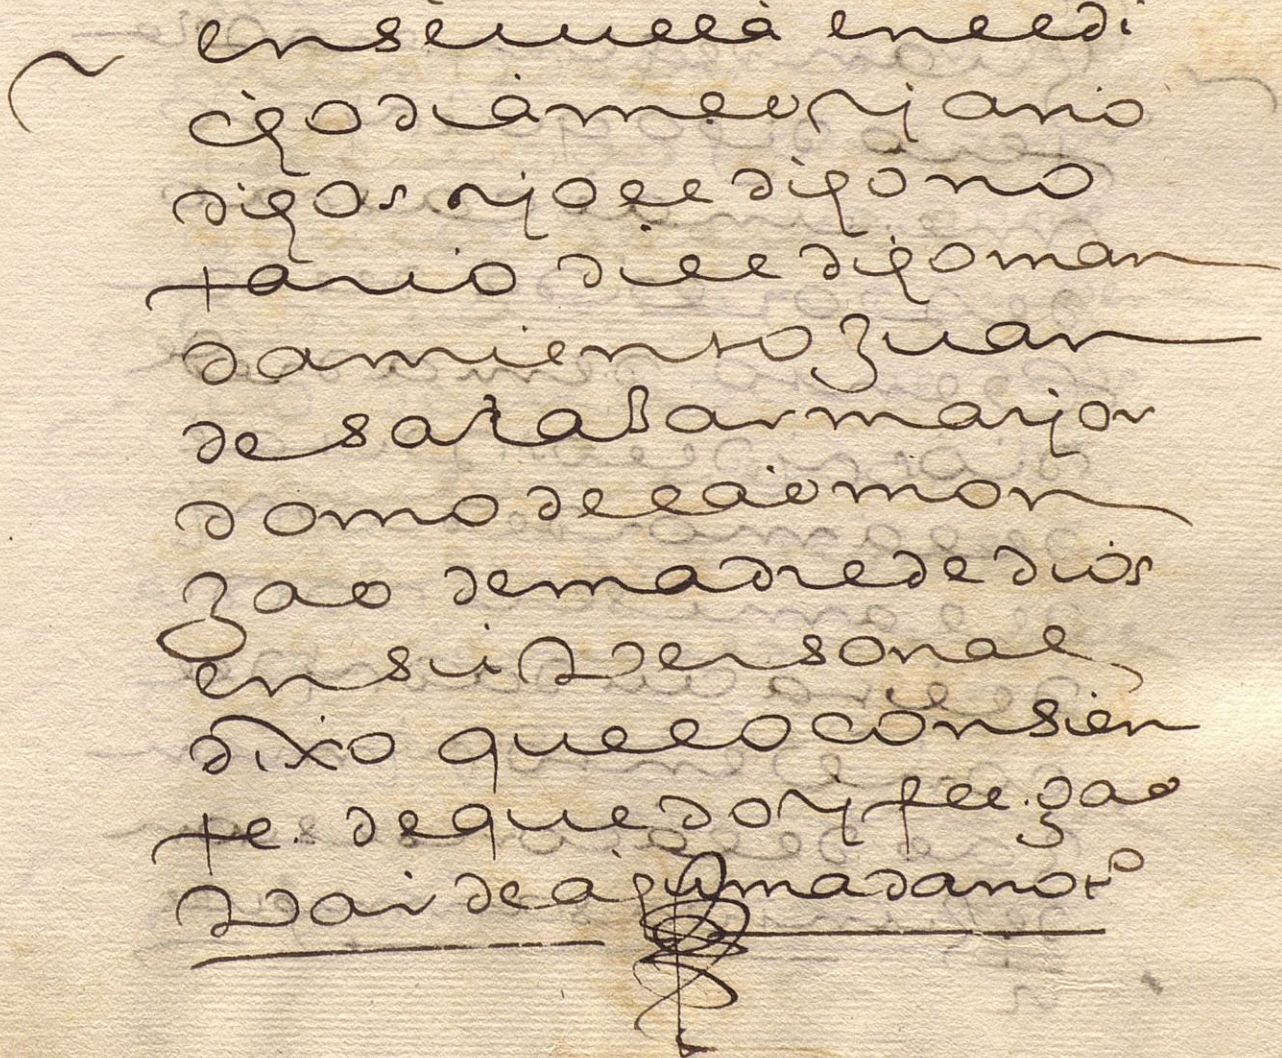 en seuilla en el di
cho dia mes y año
dichos yo el dicho no
tario di el dicho man
damiento Juan
de salazar mayor
domo de la con
gaon de madre de dios
en su persona el
dixo que lo consien
te. de que doy fee. gao
par de aguma da noto